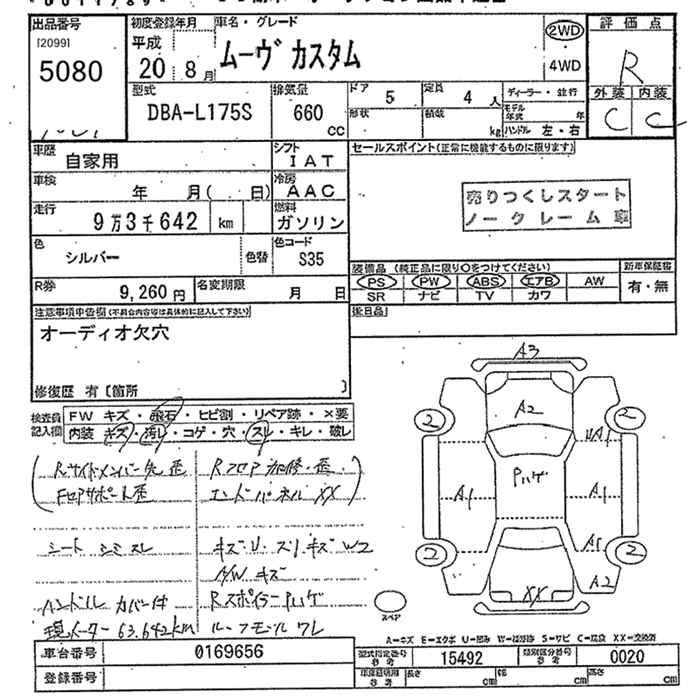 出品番号
[2099]
5080
初度登録年月
平成
20年8月
車名・グレード
ムーヴ カスタム
2WD
4WD
評価点
R
外装 内装
C C
型式
DBA-L175S
排気量
660
CC
ドア 5
定員 4人
形状
積載 kg
ディーラー・並行
モデル年式 年
ハンドル 左・右
車歴
自家用
シフト
IAT
車検
年 月( 日)
冷房
AAC
走行
9万3千642 km
燃料
ガソリン
色
シルバー
色替
色コード
S35
R券
9,260円
名変期限
月 日
セールスポイント(正常に機能するものに限ります)
売りつくしスタート
ノークレーム車
装備品 (純正品に限り○をつけてください)
新車保証書
PS PW ABS エアB AW
SR ナビ TV カワ
有・無
後日品
注意事項申告欄(不具合内容等は具体的に記入して下さい)
オーディオ欠穴
修復歴 有〔箇所 〕
検査員記入欄
FW キズ・飛石・ヒビ割・リペア跡・×要
内装 キズ・汚レ・コゲ・穴・スレ・キレ・破レ
Rサイドメンバー先歪
Rフロア 歪
Fロアサポート歪
エンドパネルXX
シート シミ スレ
キズ・U・スリキズW2
A/W キズ
ハンドルカバー付
Rスポイラー Pハゲ
現メーター63.642km
ルーフモール ワレ
A3
A2
2 2
A1
Pハゲ
A1 A1
A1
2 2
A2
XX
スペア
A=キズ E=エクボ U=凹み W=補修跡 S=サビ C=腐食 XX=交換済
車台番号
0169656
登録番号
型式指定番号
参考
15492
類別区分番号
参考
0020
長さ cm
幅 cm
高さ cm